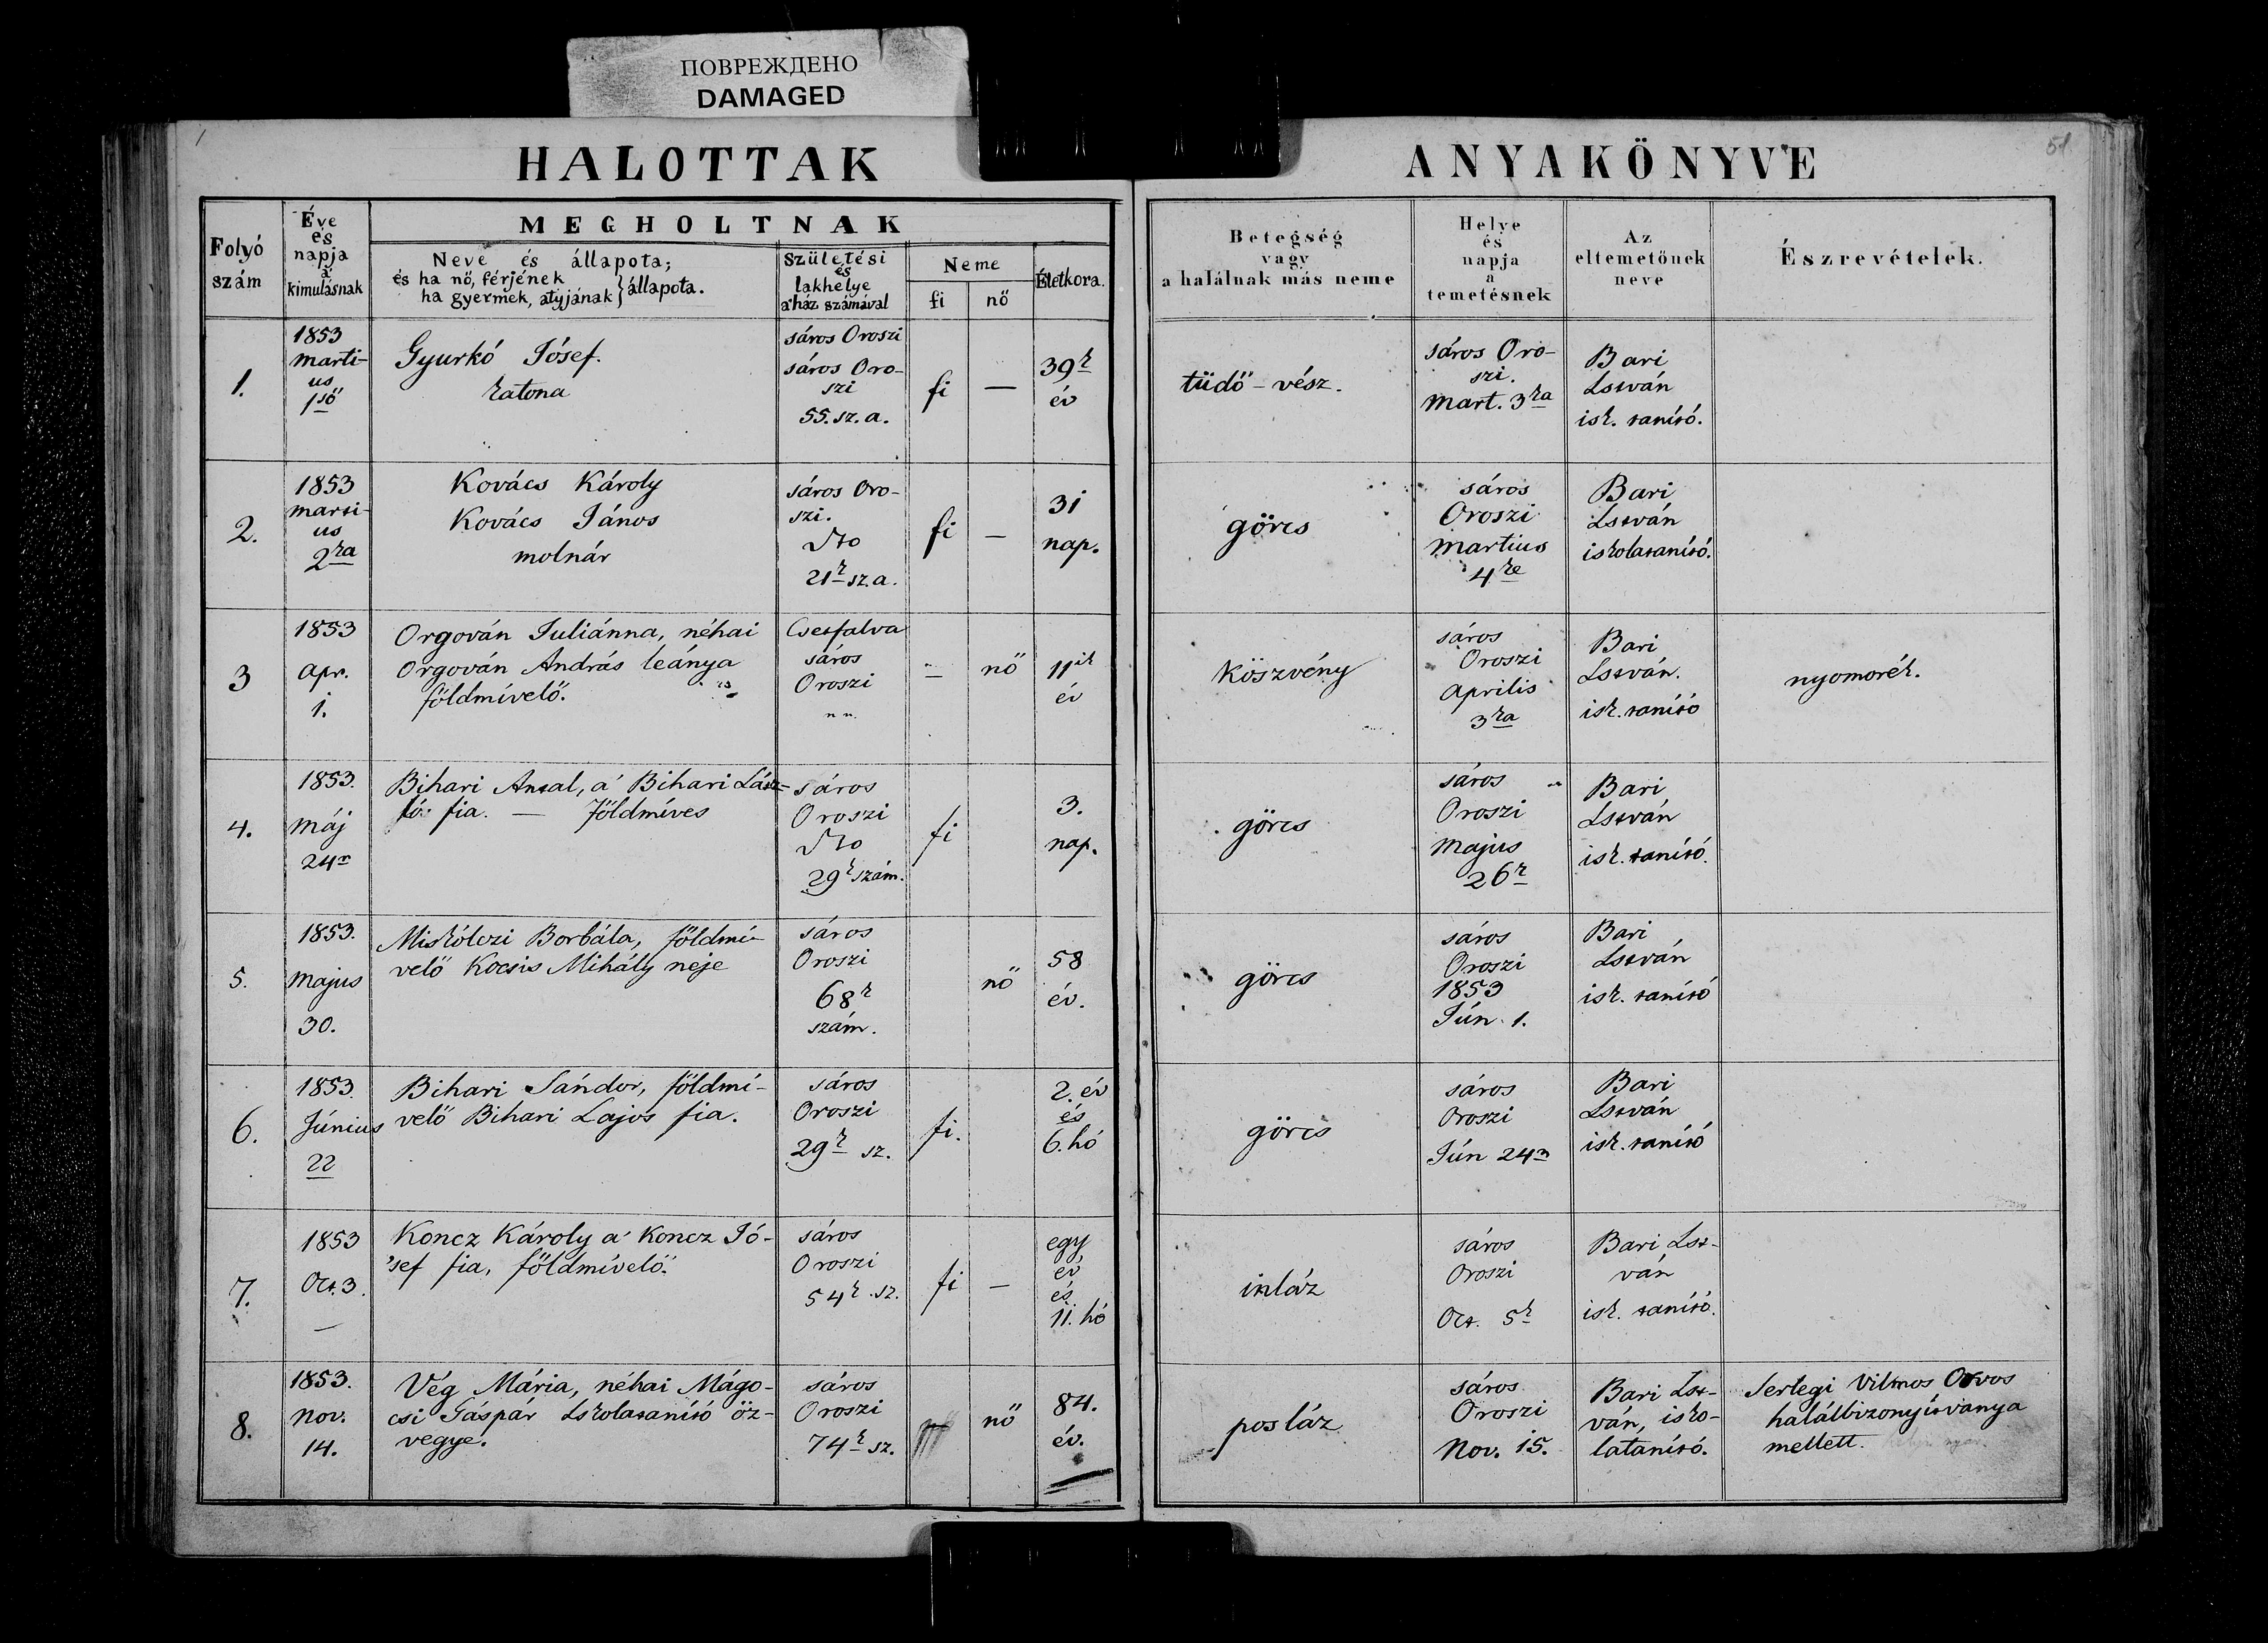 ПОВРЕЖДЕНО
DAMAGED
1
51
HALOTTAK
ANYAKÖNYVE
Folyó
szám
Éve
és
napja
a'
kimulásnak
MEGHOLTNAK
Neve és állapota;
és ha nő, férjének
ha gyermek, atyjának } állapota.
Születési
és
lakhelye
a'ház számával
Neme
fi
nő
Életkora.
Betegség
vagy
a halálnak más neme
Helye
és
napja
a
temetésnek
Az
eltemetőnek
neve
Észrevételek.
1.
1853
marti-
us
1ső
Gyurkó Jósef.
katona
sáros Oroszi
sáros Oro-
szi
55. sz. a.
fi
—
39k
év
tüdő-vész.
sáros Oro-
szi.
Mart. 3ka
Bari
István
isk. tanító.
2.
1853
marti-
us
2ka
Kovács Károly
Kovács János
molnár
sáros Oro-
szi.
dto
21k sz. a.
fi
—
31
nap.
görcs
sáros
Oroszi
Martius
4ke
Bari
István
iskolatanító.
3
1853
Apr.
1.
Orgován Juliánna, néhai
Orgován András leánya
földmívelő.
Csetfalva
sáros
Oroszi
n n.
—
nő
11ik
év
köszvény
sáros
Oroszi
Aprilis
3ka
Bari
István.
isk. tanító
nyomorék.
4.
1853.
Máj
24n
Bihari Antal, a' Bihari Lász-
ló fia. — földmíves
sáros
Oroszi
dto
29k szám.
fi
3.
nap.
görcs
sáros
Oroszi
Majus
26k
Bari
István
isk. tanító.
5.
1853.
Majus
30.
Miskólczi Borbála, földmí-
velő Kocsis Mihály neje
sáros
Oroszi
68k
szám.
nő
58
év.
görcs
sáros
Oroszi
1853
Jún. 1.
Bari
István
isk. tanító
6.
1853.
Június
22
Bihari Sándor, földmí-
velő Bihari Lajos fia.
sáros
Oroszi
29k sz.
fi.
2. év
és
6. hó
görcs
sáros
Oroszi
Jún 24n
Bari
István
isk. tanító
7.
1853
Oct. 3.
—
Koncz Károly a' Koncz Jó-
'sef fia, földmívelő.
sáros
Oroszi
54k sz.
fi
—
egy
év
és
11. hó
inláz
sáros
Oroszi
Oct. 5k
Bari Ist-
ván
isk. tanító.
8.
1853.
Nov.
14.
Vég Mária, néhai Mágo-
csi Gáspár Iskolatanító öz-
vegye.
sáros
Oroszi
74k sz.
nő
84.
év.
posláz
sáros
Oroszi
Nov. 15.
Bari Ist-
ván, isko-
latanító.
Serlegi Vilmos Orvos
halálbizonyítványa
mellett.